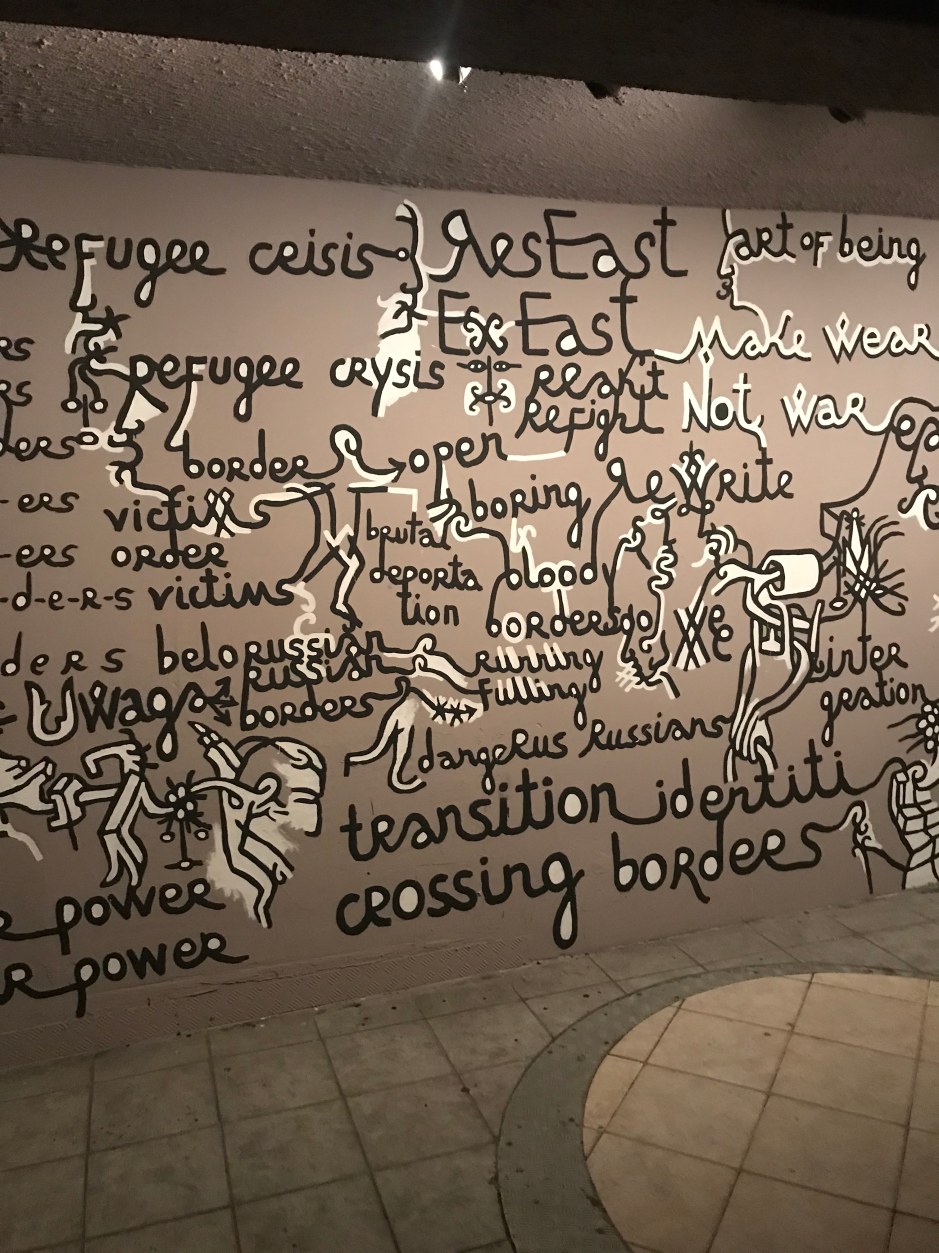 Refugee ceisis
ResEast
art of being
Ex East
Make wear
rs
refugee crysis
resist
Refight
Not war
rs
ders
border
open
-ers
victims
boring
ReWrite
brutal
-ers
order
deporta
tion
bloody
-d-e-r-s
victims
borders
go
We
ders
belorussian
russian
running
inter
Uwaga
borders
filling
gration
dangeRus Russians
transition identiti
power
crossing borders
R power